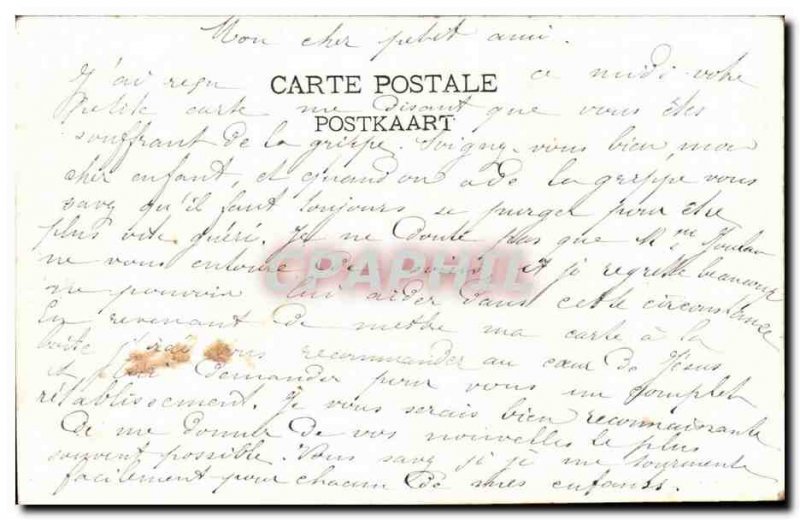 Mon cher petit ami.
J'ai reçu ce midi votre
CARTE POSTALE
petite carte me disant que vous êtes
POSTKAART
souffrant de la grippe. Soignez-vous bien, mon
cher enfant, et quand on a de la grippe vous
savez qu'il faut toujours se purger pour être
plus vite guéri. Je ne doute pas que Mme
ne vous entoure de soins et je regrette beaucoup
CPAPHIL
ne pouvoir lui aider dans cette circonstance
En revenant de mettre ma carte à la
boîte j'irai vous recommander au cœur de Jésus
et demander pour vous un complet
rétablissement. Je vous serais bien reconnaissante
de me donner de vos nouvelles le plus
souvent possible. Vous savez si je me tourmente
facilement pour chacun de mes enfants.